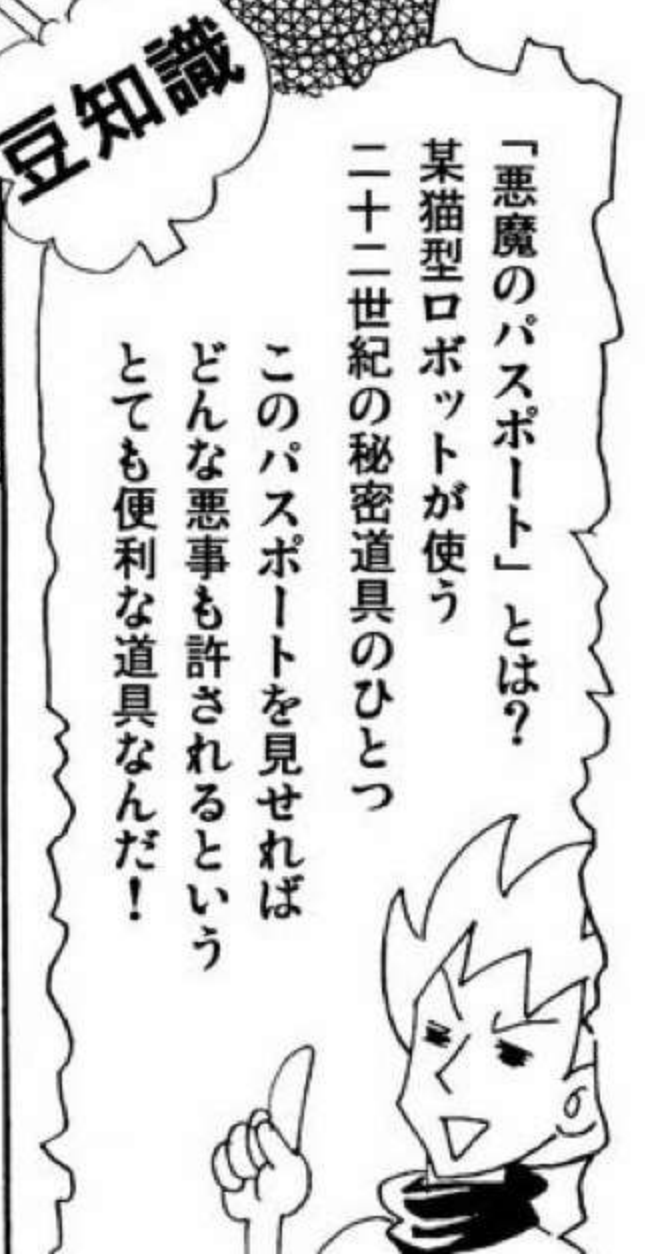 豆知識
「悪魔のパスポート」とは？
某猫型ロボットが使う
二十二世紀の秘密道具のひとつ
このパスポートを見せれば
どんな悪事も許されるという
とても便利な道具なんだ！